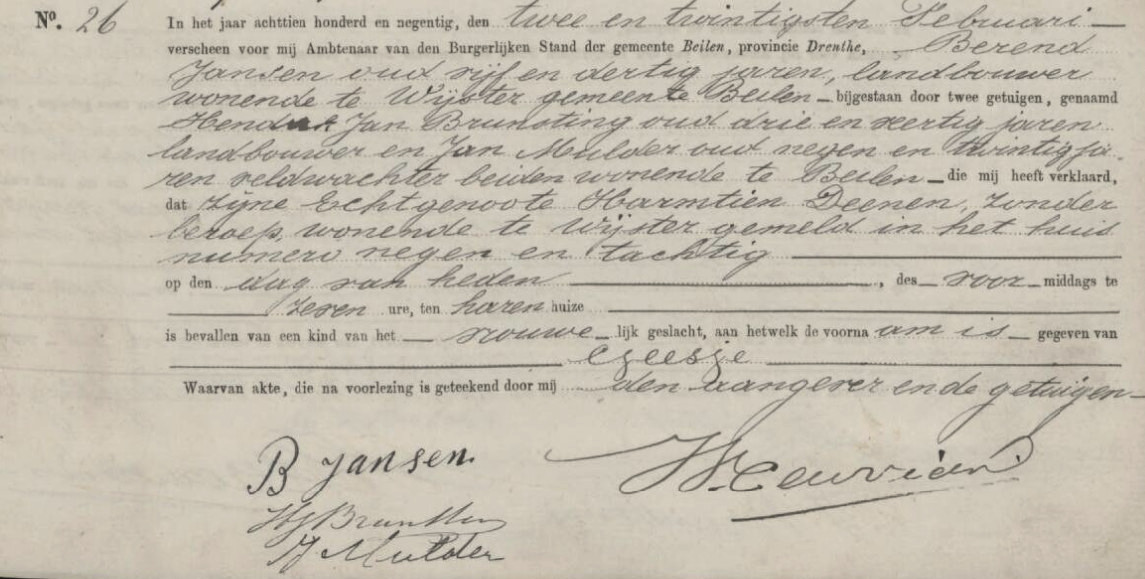 N⁰. 26 In het jaar achttien honderd en negentig, den twee en twintigsten Februari
verscheen voor mij Ambtenaar van den Burgerlijken Stand der gemeente Beilen, provincie Drenthe, Berend
Jansen oud vijf en dertig jaren, landbouwer
wonende te Wijster gemeente Beilen bijgestaan door twee getuigen, genaamd
Hendrik Jan Brunsting oud drie en veertig jaren
landbouwer en Jan Mulder oud negen en twintig ja
ren veldwachter beiden wonende te Beilen die mij heeft verklaard,
dat zijne Echtgenoote Harmtien Deenen, zonder
beroep, wonende te Wijster gemeld in het huis
numero negen en tachtig
op den dag van heden, des voor middags te
zeven ure, ten haren huize
is bevallen van een kind van het vrouwe lijk geslacht, aan hetwelk de voorna am is gegeven van
Geesje
Waarvan akte, die na voorlezing is geteekend door mij den aangever en de getuigen
B Jansen.
HJ Brunsting
J Mulder